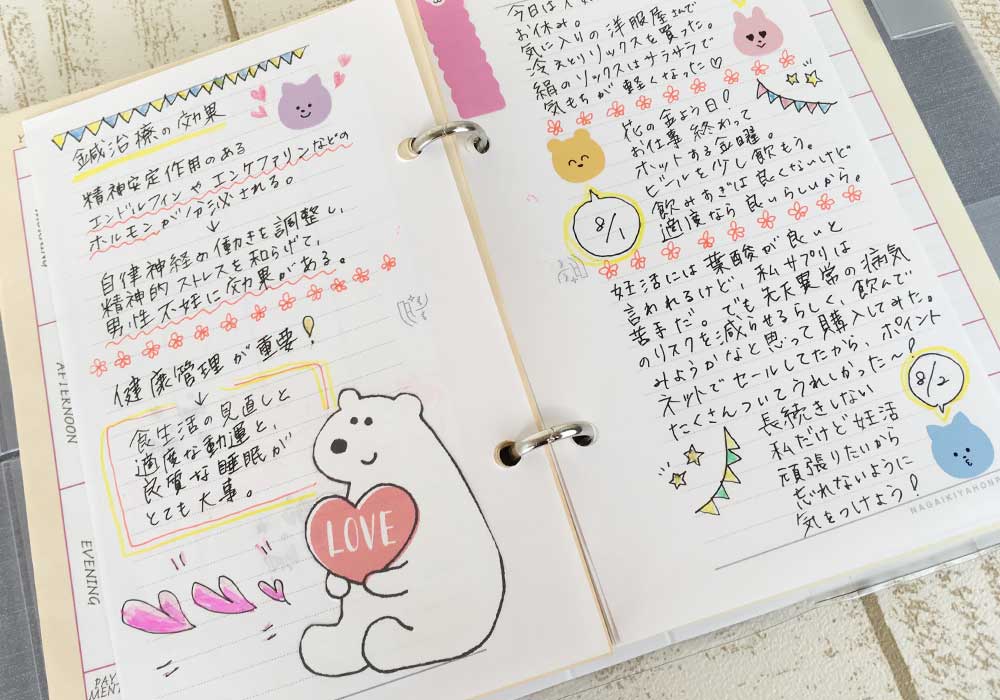 鍼治療の効果
精神安定作用のある
エンドルフィンやエンケファリンなどの
ホルモンが分泌される。
↓
自律神経の働きを調整し、
精神的ストレスを和らげて、
男性不妊に効果がある。
健康管理が重要!
↓
食生活の見直しと
適度な動運と、
良質な睡眠が
とても大事。
LOVE
AFTERNOON
EVENING
PAY
MENT
今日は
お休み。
気に入りの洋服屋さんで
冷えとりソックスを買った。
絹のソックスはサラサラで
気もちが軽くなった♡
花の金よう日!
お仕事終わって
ホットする金曜。
ビールを少し飲もう。
飲みすぎは良くないけど
適度なら良いらしいから。
8/1
妊活には葉酸が良いと
言われるけど、私サプリは
苦手だ。でも先天異常の病気
のリスクを減らせるらしく、飲んで
みようかなと思って購入してみた。
ネットでセールしてたから、ポイント
たくさんついてうれしかった〜!
8/2
長続きしない
私だけど妊活
頑張りたいから
忘れないように
気をつけよう!
NAGAIKIYAHONP